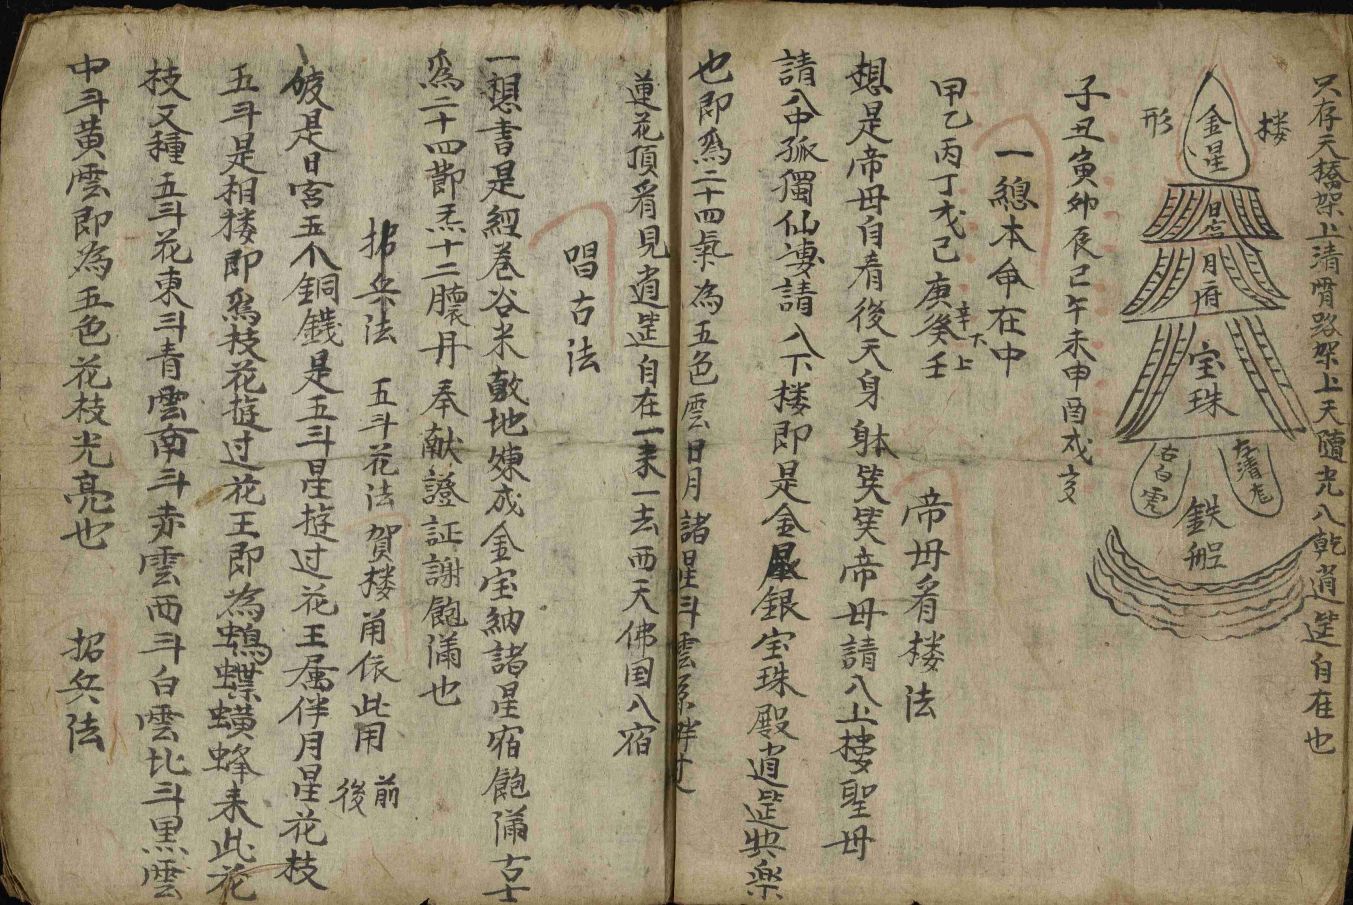 只存天橋架上清骨路架上天隨光八乾逍遥自在也
楼
形
金星
日宫
月府
宝珠
左清龙
右白虎
鉄船
子丑寅卯辰巳午未申酉戌亥
一總本命在中
甲乙丙丁戊己庚辛癸壬
下上
帝毋看楼法
想是帝毋自看後天身躰笑笑帝毋請八上楼聖毋
請八中孤獨仙専請八下楼即是金星銀宝珠殿逍遥快樂
也即為二十四氣為五色雲日月諸星斗雲
蓮花頂看見逍遥自在一来一去西天佛国八宿
唱古法
一想書是經巻谷米敷地煉成金宝納諸星宿飽满古士
為二十四節炁十二臟丹奉献證証謝飽满也
招兵法
五斗花法賀楼用依此用
前
後
彼是日宫五个銅錢是五斗星遊过花王属伴月星花枝
五斗是相楼即為枝花遊过花王即為蝴蝶蟥蜂来此花
枝又種五斗花東斗青雲南斗赤雲西斗白雲北斗黒雲
中斗黄雲即為五色花枝光亮也
招兵法